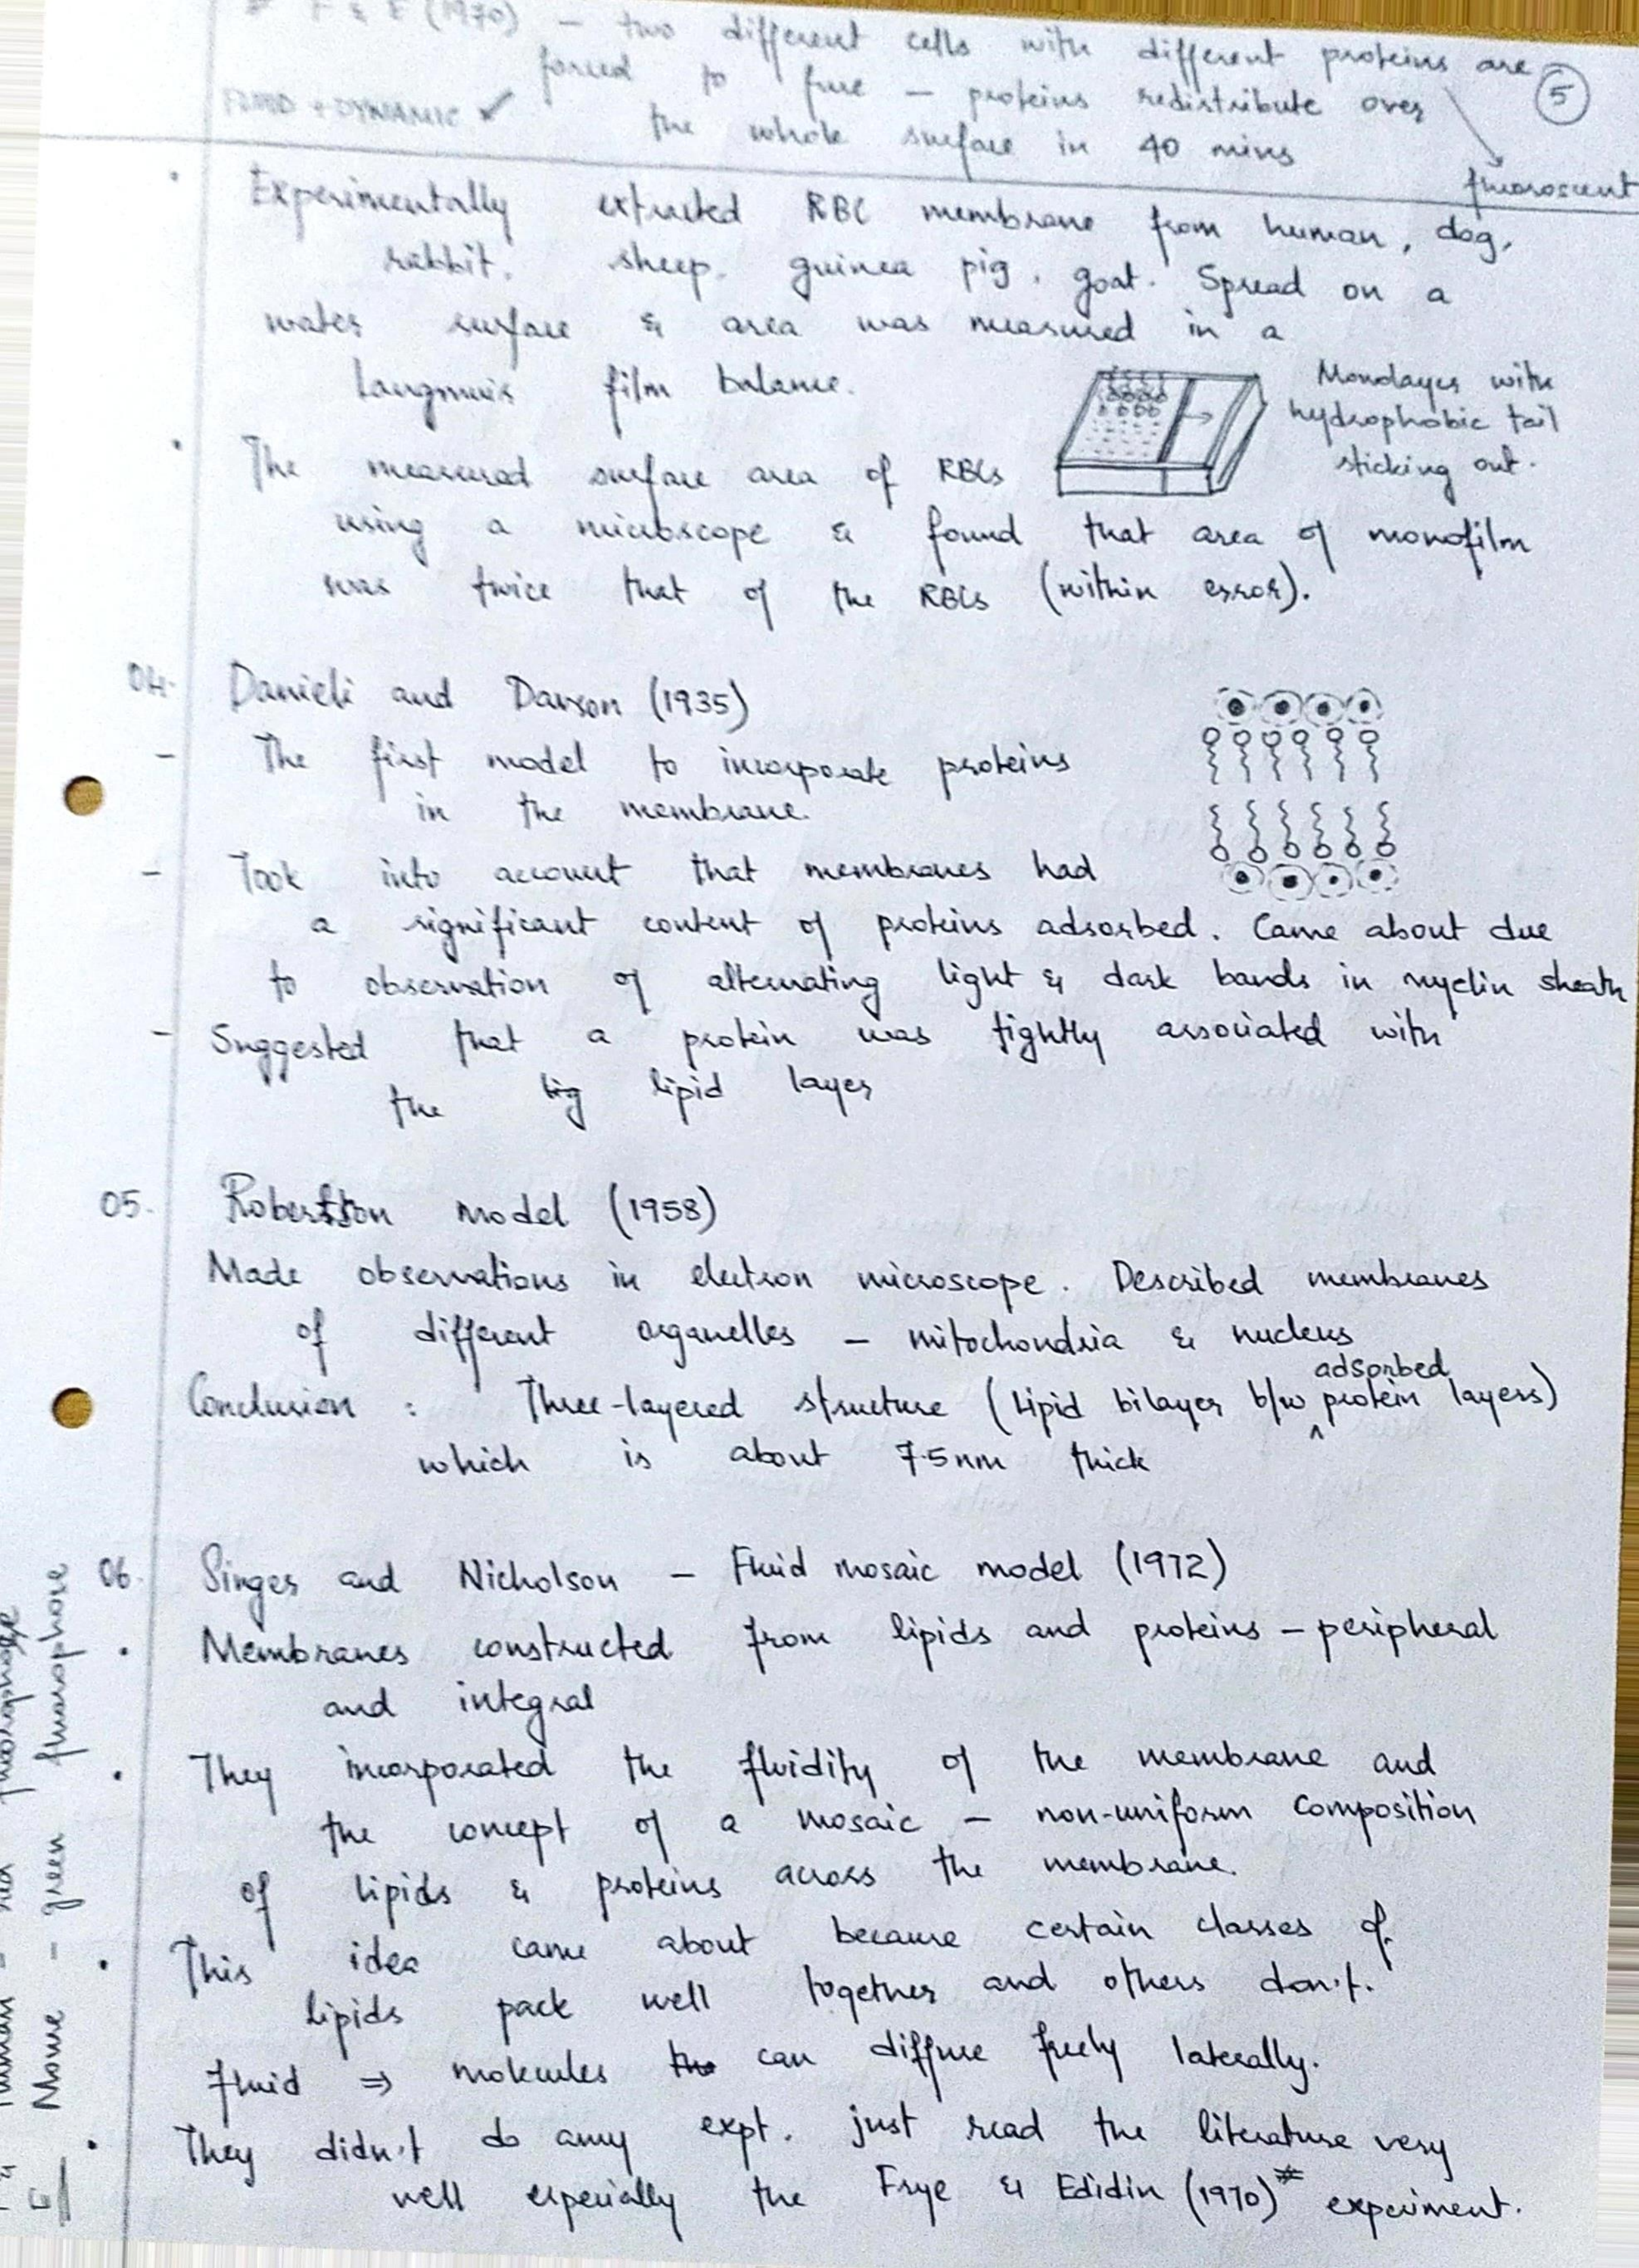 # F & E (1970) – two different cells with different proteins are
forced to fuse – proteins redistribute over
FLUID + DYNAMIC ✓ the whole surface in 40 mins
5
fluoroscent
• Experimentally extracted RBC membrane from human, dog,
rabbit, sheep, guinea pig, goat. Spread on a
water surface & area was measured in a
Langmuir film balance.
Monolayer with
hydrophobic tail
sticking out.
• The measured surface area of RBCs
using a microscope & found that area of monofilm
was twice that of the RBCs (within error).
04. Danieli and Davson (1935)
– The first model to incorporate proteins
in the membrane.
– Took into account that membranes had
a significant content of proteins adsorbed. Came about due
to observation of alternating light & dark bands in myelin sheath
– Suggested that a protein was tightly associated with
the lipid layer
05. Robertson model (1958)
Made observations in electron microscope. Described membranes
of different organelles – mitochondria & nucleus
Conclusion : Three-layered structure (lipid bilayer b/w adsorbed protein layers)
which is about 7.5nm thick
06. Singer and Nicholson – Fluid mosaic model (1972)
• Membranes constructed from lipids and proteins – peripheral
and integral
• They incorporated the fluidity of the membrane and
the concept of a mosaic – non-uniform composition
of lipids & proteins across the membrane.
• This idea came about because certain classes of
lipids pack well together and others don't.
Fluid ⇒ molecules can diffuse freely laterally.
• They didn't do any expt. just read the literature very
well especially the Frye & Edidin (1970)# experiment.
Human – red fluorophore
Mouse – green fluorophore